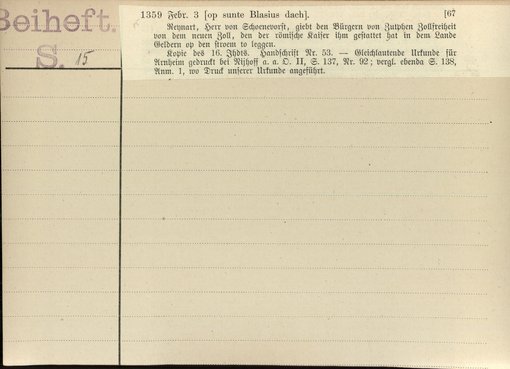 Beiheft.
S. 15
1359 Febr. 3 [op sunte Blasius dach]. [67
Reynart, Herr von Schoenevorst, giebt den Bürgern von Zutphen Zollfreiheit
von dem neuen Zoll, den der römische Kaiser ihm gestattet hat in dem Lande
Geldern op den stroem to leggen.
Kopie des 16. Jhdts. Handschrift Nr. 53. — Gleichlautende Urkunde für
Arnheim gedruckt bei Nijhoff a. a. O. II, S. 137, Nr. 92; vergl. ebenda S. 138,
Anm. 1, wo Druck unserer Urkunde angeführt.